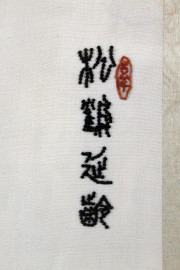 松鶴延齡